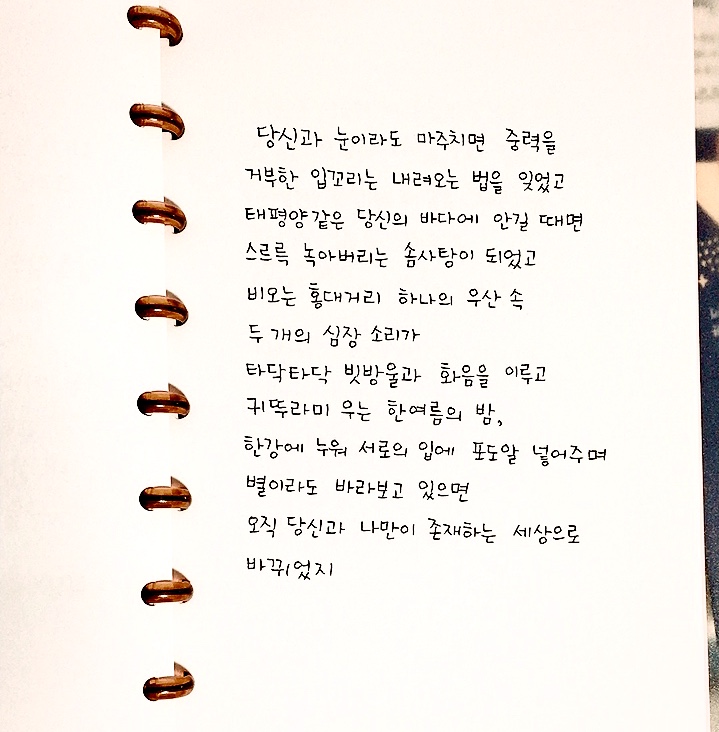 당신과 눈이라도 마주치면 중력을
거부한 입꼬리는 내려오는 법을 잊었고
태평양같은 당신의 바다에 안길 때면
스르륵 녹아버리는 솜사탕이 되었고
비오는 홍대거리 하나의 우산 속
두 개의 심장 소리가
타닥타닥 빗방울과 화음을 이루고
귀뚜라미 우는 한여름의 밤,
한강에 누워 서로의 입에 포도알 넣어주며
별이라도 바라보고 있으면
오직 당신과 나만이 존재하는 세상으로
바뀌었지